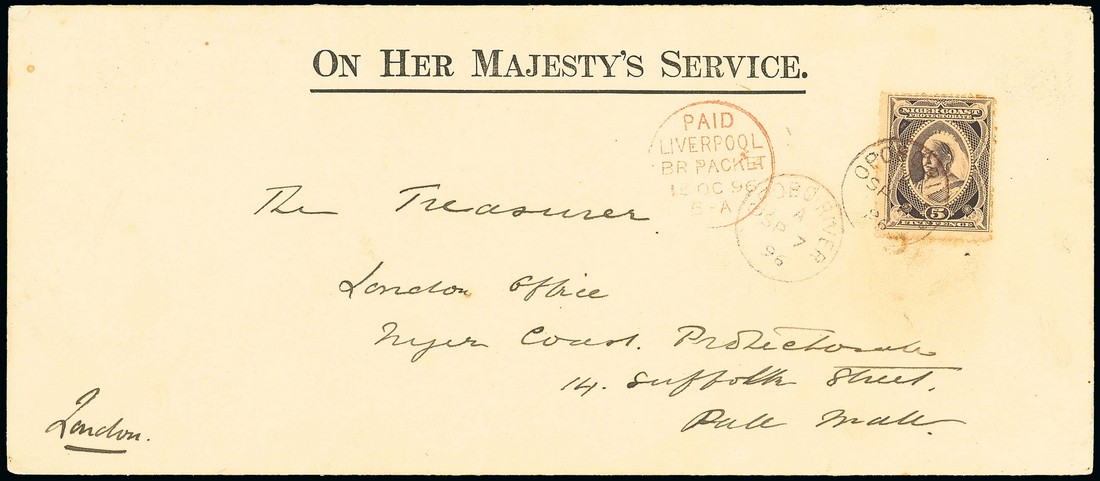 ON HER MAJESTY'S SERVICE.
NIGER COAST
PROTECTORATE
5
FIVE PENCE
PAID
LIVERPOOL
BR PACKET
OC 96
A
OPOBO RIVER
A
SP 7
96
SP
96
The Treasurer
London Office
Niger Coast. Protectorate
14. Suffolk Street.
Pall Mall.
London.